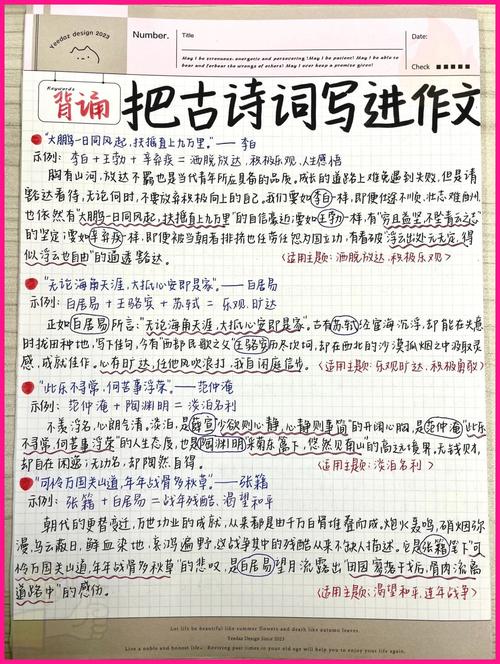 Yeedaz design 2023
Number.
Title
Date:
May I be strenuous, energetic and persevering! May I be patient! May I be able to
bear and forbear the wrongs of others! May I ever keep a promise given!
Check
Keywords
背诵
把古诗词写进作文
“大鹏一日同风起，扶摇直上九万里。”——李白
示例：李白+王勃+辛弃疾=洒脱放达，积极乐观，人生感悟
胸有山河，放达不羁也是当代青年所应具备的品质。成长的道路上难免遇到失败，但是请
豁达看待，无论何时，不要放弃积极向上的自己。我们要如李白一样，即便仕途不顺，壮志难自州，
也依然有“大鹏一日同风起，扶摇直上九万里”的自信豪迈；要如王勃一样，有“穷且益坚，不坠青云之志”
的坚定；要如辛弃疾一样，即便被当朝者排挤也任劳任怨为国立功，有看破“浮云出处元无定，得
似浮云也自由”的通透豁达。
（适用主题：洒脱放达，积极乐观）
“无论海角天涯，大抵心安即是家。”——白居易
示例：白居易+王骆宾+苏轼=乐观，旷达
正如白居易所言：“无论海角天涯，大抵心安即是家。”古有苏轼经宦海沉浮，却能在失意
时找田种地，写下佳句，今有“西部民歌之父”王骆宾历尽坎坷，却在西北的沙漠孤烟之中吸取灵
感，成就佳作。心有旷达，任他风吹浪打，我自闲庭信步。
（适用主题：乐观旷达，积极勇敢）
“此乐不寻常，何苦事浮荣。”——范仲淹
示例：范仲淹+陶渊明=淡泊名利
不羡浮名，心朗气清。淡泊，是薛宣“少欲则心静，心静则事简”的平阔心胸，是范仲淹“此乐
不寻常，何苦事浮荣”的人生态质，也是陶渊明“采菊东篱下，悠然见南山”的高远境界。无钱财，
却自在闲逸；无功名，却陶然自得。
（适用主题：淡泊名利）
“可怜万国关山道，年年战骨多秋草”——张籍
示例：张籍+白居易=战年残酷、渴望和平
朝代的更替变迁，万世功业的成就，从来都是由千万白骨堆叠而成。炮火轰鸣，硝烟弥
漫，乌云蔽日，鲜血染地，哀鸿遍野，这战争其中的残酷从来不缺人描述。它是张籍笔下“可
怜万国关山道，年年战骨多秋草”的悲叹，是白居易望月流露出“田园寥落干戈后，骨肉流离
道路中”的感伤。
（适用主题：渴望和平，连年战争）
Let life be beautiful like summer flowers and death like autumn leaves.
Yeedaz Design Since 2023
Live a noble and honest life. Reviving past times in your old age will help you to enjoy your life again.